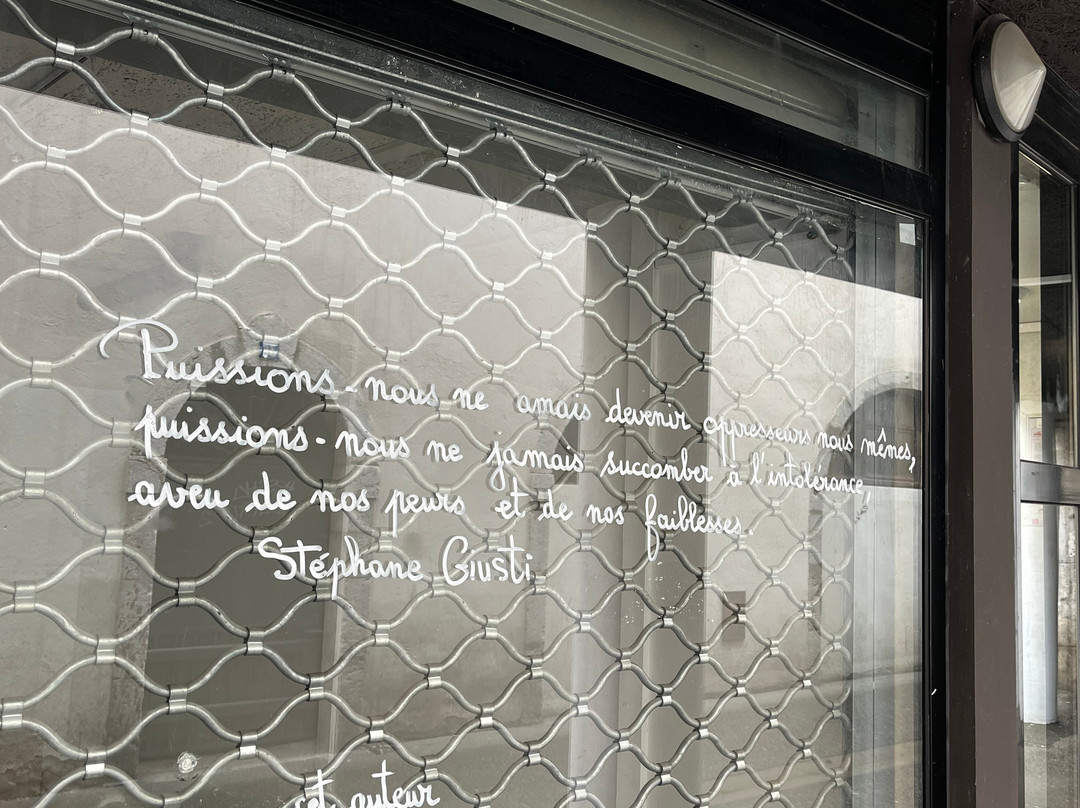 Puissions-nous ne amais devenir oppresseurs nous mêmes,
puissions-nous ne jamais succomber à l'intolérance,
aveu de nos peurs et de nos faiblesses.
Stéphane Giusti
cet auteur